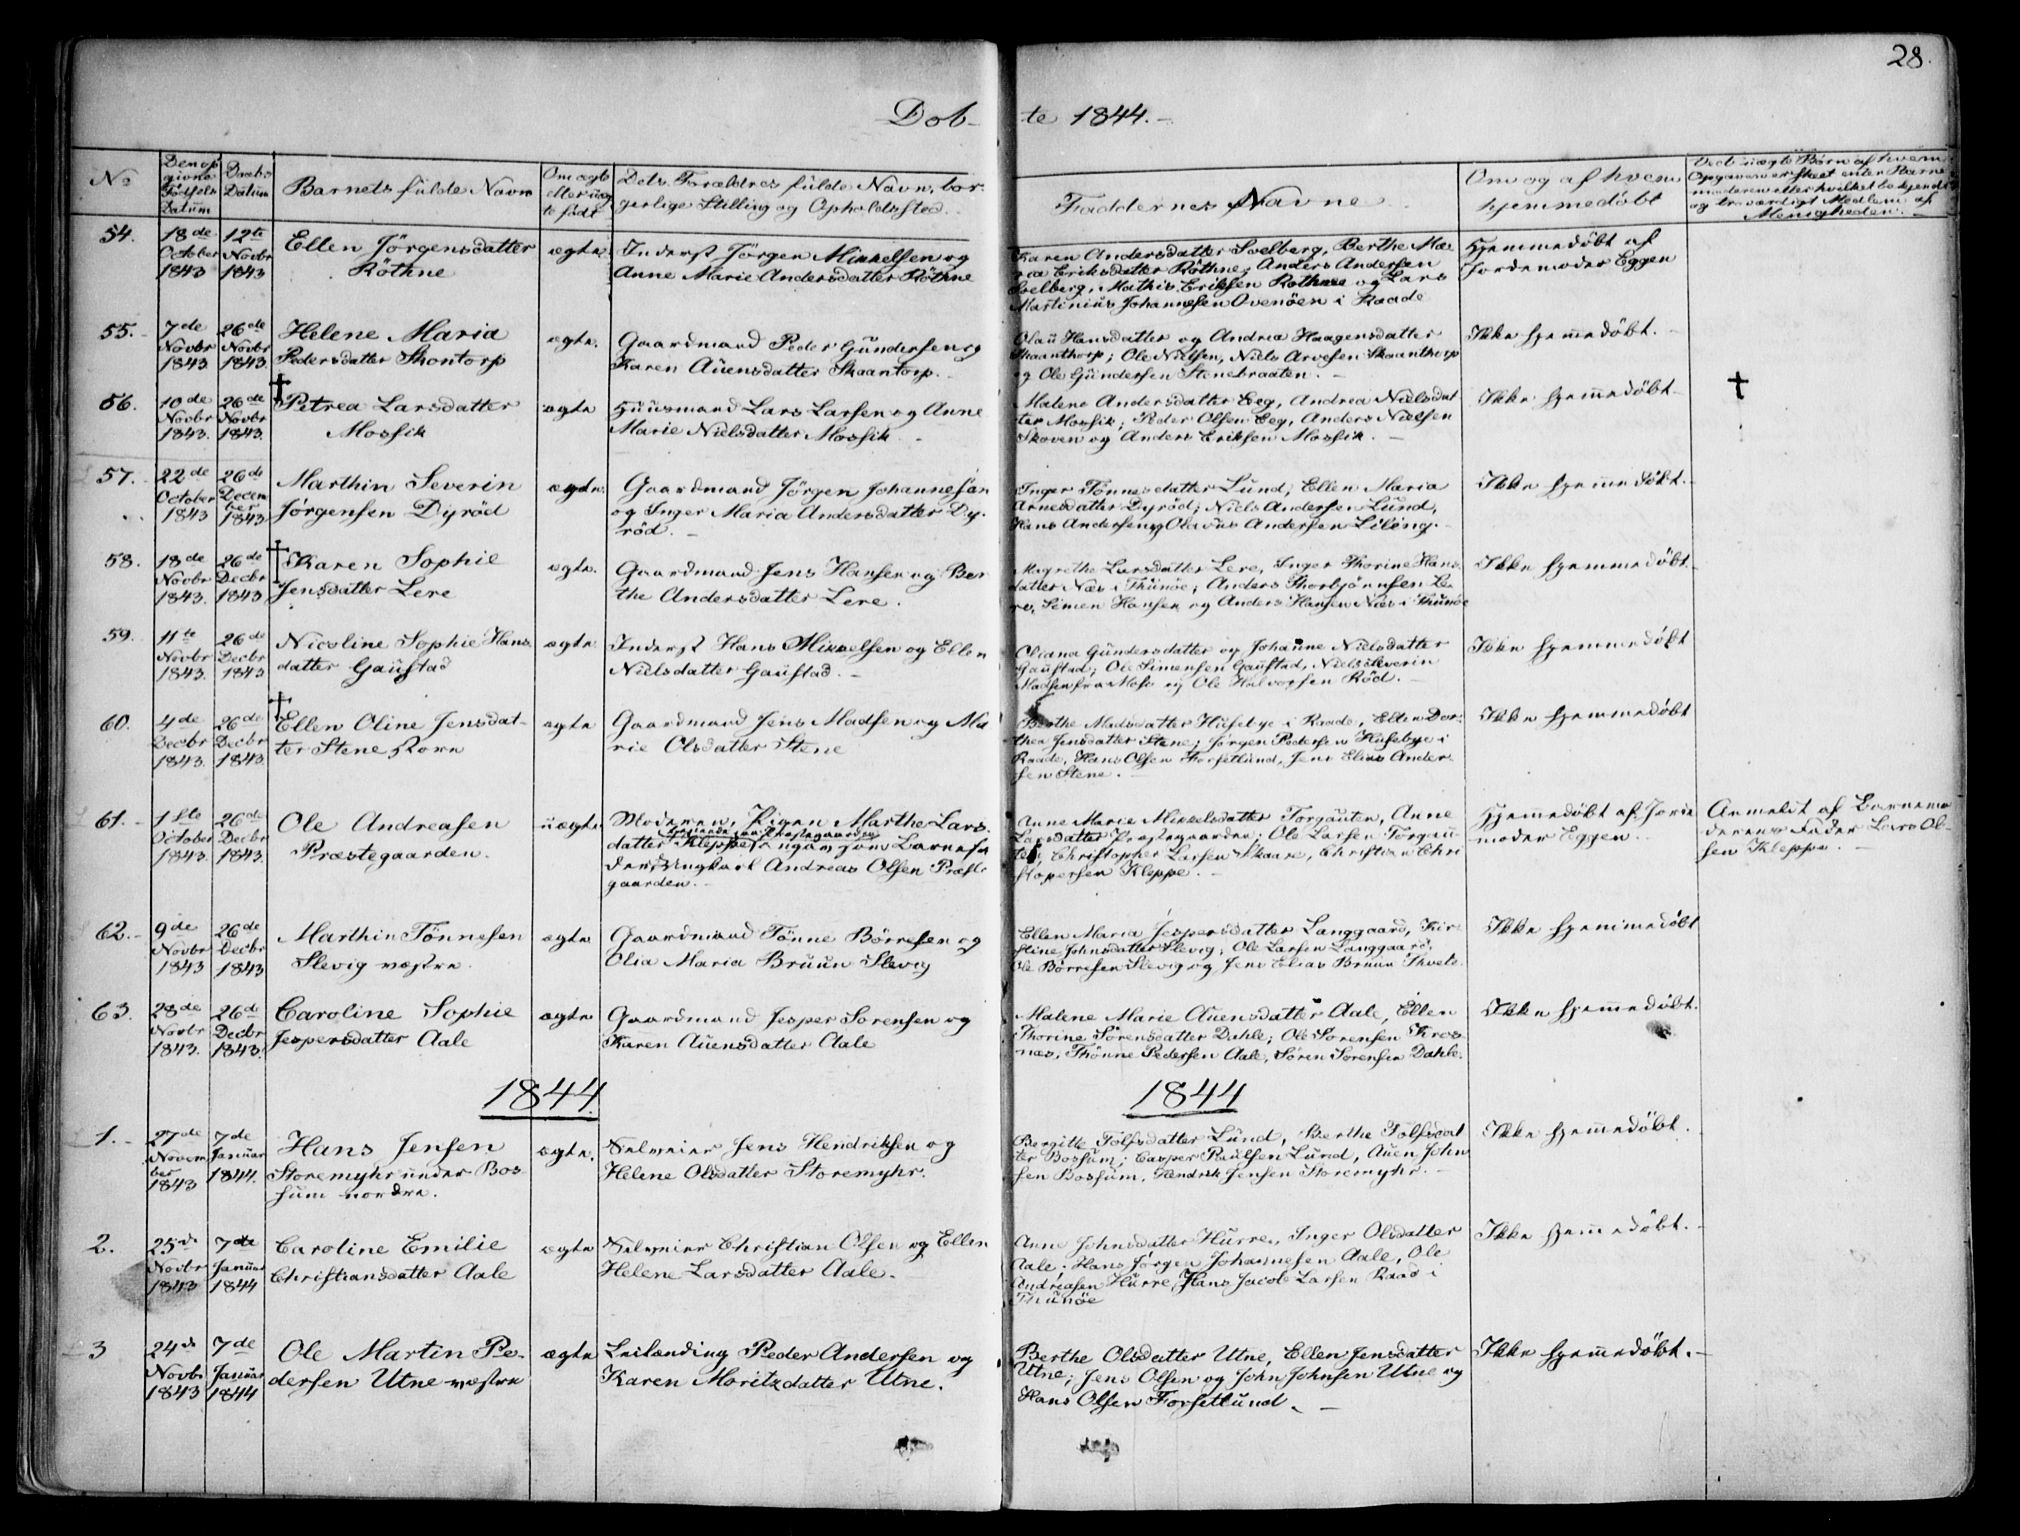 28.
Døb- te 1844.-
No
Den op
givne
Fødsels
Datum
Daabs
Datum
Barnets fulde Navn
Om ægte
eller uæg
te født
Dets Forældres fulde Navn, bor-
gerlige Stilling og Opholdssted.
Faddernes Navne
Om og af hvem
hjemmedøbt
Ved uægte Børn af hvem
Opgaven er skeet enten Barne
moderen eller hvilket bekjendt
og troværdigt Medlem af
Menigheden.
54.
18de
October
1843
12te
Novbr
1843
Ellen Jörgensdatter
Röthne
ægte.
Inderst Jörgen Mikkelsen og
Anne Marie Andersdatter Röthne
Karen Andersdatter Solberg, Berthe Ma-
ria Eriksdatter Röthne; Anders Andersen
Solberg, Mathis Eriksen Rothne og Lars
Martinius Johannesen Ovenöen i Raade
Hjemmedöbt af
Jordemoder Eggen
55.
7de
Novbr
1843
26de
Novbr
1843.
Helene Maria
Pedersdatter Skontorp
ægte.
Gaardmand Peder Gundersen og
Karen Auensdatter Skaantorp.
Olau Hansdatter og Andrea Haagensdatter
Skaanthorp; Ole Nielsen, Niels Arvesen Skaanthorp
og Ole Gundersen Stenebraaten.-
Ikke hjemedöbt.-
56.
10de
Novbr
1843.
26de
Novbr
1843.
† Petrea Larsdatter
Mossik
ægte
Huusmand Lars Larsen og Anne
Marie Nielsdatter Mossik.
Malene Andersdatter Eeg, Andrea Nielsdat
ter Mossik; Peder Olsen Eeg, Anders Nielsen
Skoven og Anders Eriksen Mossik.-
Ikke hjemedöbt
†
57.
22de
October
1843
26de
Decem
ber
1843
Marthin Severin
Jörgensen Dyröd
ægte.
Gaardmand Jörgen Johannesen
og Inger Maria Andersdatter Dy-
röd.-
Inger Tönnesdatter Lund; Ellen Maria
Arnesdatter Dyröd; Niels Andersen Lund,
Hans Andersen og Olavus Andersen Lilleng.-
Ikke hjemedöbt.-
58.
18de
Novbr
1843.
26de
Decbr
1843
† Karen Sophie
Jensdatter Lere
ægte.
Gaardmand Jens Hansen og Ber-
the Andersdatter Lere.
Magrethe Larsdatter Lere, Inger Thorine Hans-
datter Næs i Thunöe; Anders Thorbjörnsen Le-
re, Simen Hansen og Anders Hansen Næs i Thunöe
Ikke hjemmedöbt.
59.
11te
Novbr
1843.
26de
Decbr
1843
Nicoline Sophie Hans
datter Gaustad
ægte
Inderst Hans Mikkelsen og Ellen
Nielsdatter Gaustad.-
Oliana Gundersdatter og Johanne Nielsdatter
Gaustad; Ole Simensen Gaustad, Niels Severin
Madsen fra Moss og Ole Halvorsen Röd.-
Ikke hjemmedöbt
60.
4de
Decbr
1843.
26de
Decbr
1843.
† Ellen Oline Jensdat-
ter Stene
ægte
Gaardmand Jens Madsen og Ma
rie Olsdatter Stene
Berthe Madsdatter Husebye i Raade, Ellen Dor-
thea Jensdatter Stene; Jörgen Pedersen Husebye i
Raade, Hans Olsen Forsetlund, Jens Elias Ander-
sen Stene.-
Ikke hjemmedöbt
61.-
1ste
October
1843.
26de
Decbr
1843.
Ole Andreasen
Præstegaarden.
uægte
Moderen, Pigen Marthe Lars-
tjenende paa Præstegaarden
datter Kleppe angav som Barnefa
der Ungkarl Andreas Olsen Præste
gaarden.-
Anne Marie Mikkelsdatter Torgauten, Anne
Larsdatter Præstegaarden; Ole Larsen Torgau-
ten, Christopher Larsen Skaare, Christian Chri
stopersen Kleppe.-
Hjemedöbt af Jorde
moder Eggen.
Anmeldt af Barnemo
derens Fader Lars Ol-
sen Kleppe.-
62.-
9de
Novbr
1843
26de
Decbr
1843
Marthin Tönnesen
Slevig væstre.
ægte
Gaardmand Tönne Börresen og
Olia Maria Bruun Slevig
Ellen Maria Jespersdatter Langgaard, Kir-
stine Johnsdatter Slevig; Ole Larsen Langgaard,
Ole Börresen Slevig og Jens Elias Bruun Thvete.
Ikke hjemmedöbt
63.
28de
Novbr
1843.
26de
Decbr
1843.
Caroline Sophie
Jespersdatter Aale
ægte
Gaardmand Jesper Sorensen og
Karen Auensdatter Aale
Malene Marie Auensdatter Aale, Ellen
Thorine Sörensdatter Dahle; Ole Sorensen Kros-
næs, Thönne Pedersen Aale, Sören Sorensen Dahle.
Ikke hjemedöbt.
1844. 1844
1.-
27de
Novem
ber
1843
7de
Januar
1844.
Hans Jensen
Storemyhr under Bos
sum nordre.
ægte.
Selveier Jens Hendriksen og
Helene Olsdatter Storemyhr.
Bergitte Tolfsdatter Lund, Berthe Tolfsdat
ter Bossum; Casper Paulsen Lund, Auen John
sen Bossum, Hendrik Jensen Storemyhr.-
Ikke hjemedöbt.
2.
25de
Novbr
1843
7de
Januar
1844
Caroline Emilie
Christiansdatter Aale
ægte
Selveier Christian Olsen og Ellen
Helene Larsdatter Aale.
Anne Johnsdatter Hurre, Inger Olsdatter
Aale; Hans Jörgen Johannesen Aale, Ole
Andreasen Hurre, Hans Jacob Larsen Raad i
Thunöe
Ikke hjemedöbt.-
3
24de
Novbr
1843
7de
Januar
1844
Ole Martin Pe-
dersen Utne væstre
ægte
Leilænding Peder Andersen og
Karen Moritzdatter Utne.
Berthe Olsdatter Utne, Ellen Jensdatter
Utne; Jens Olsen og John Johnsen Utne og
Hans Olsen Forsetlund.-
Ikke hjemedöbt.-